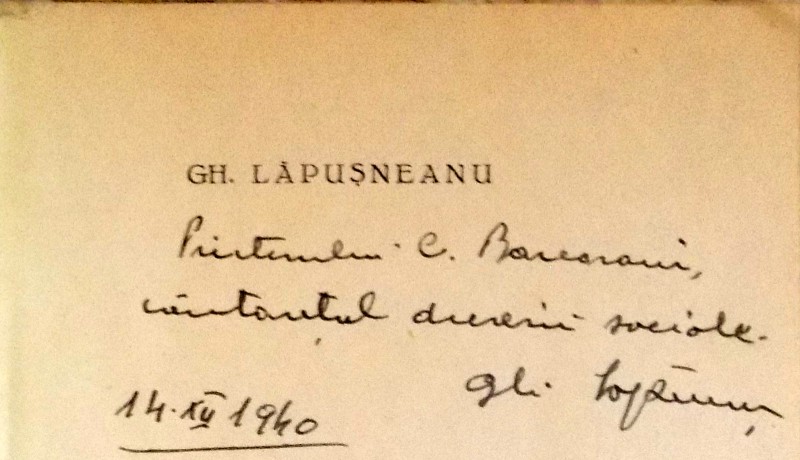 GH. LĂPUȘNEANU
Prietenului C. Barcaroiu,
cântărețul durerii sociale.
Gh. Lăpușneanu
14. XII 1940